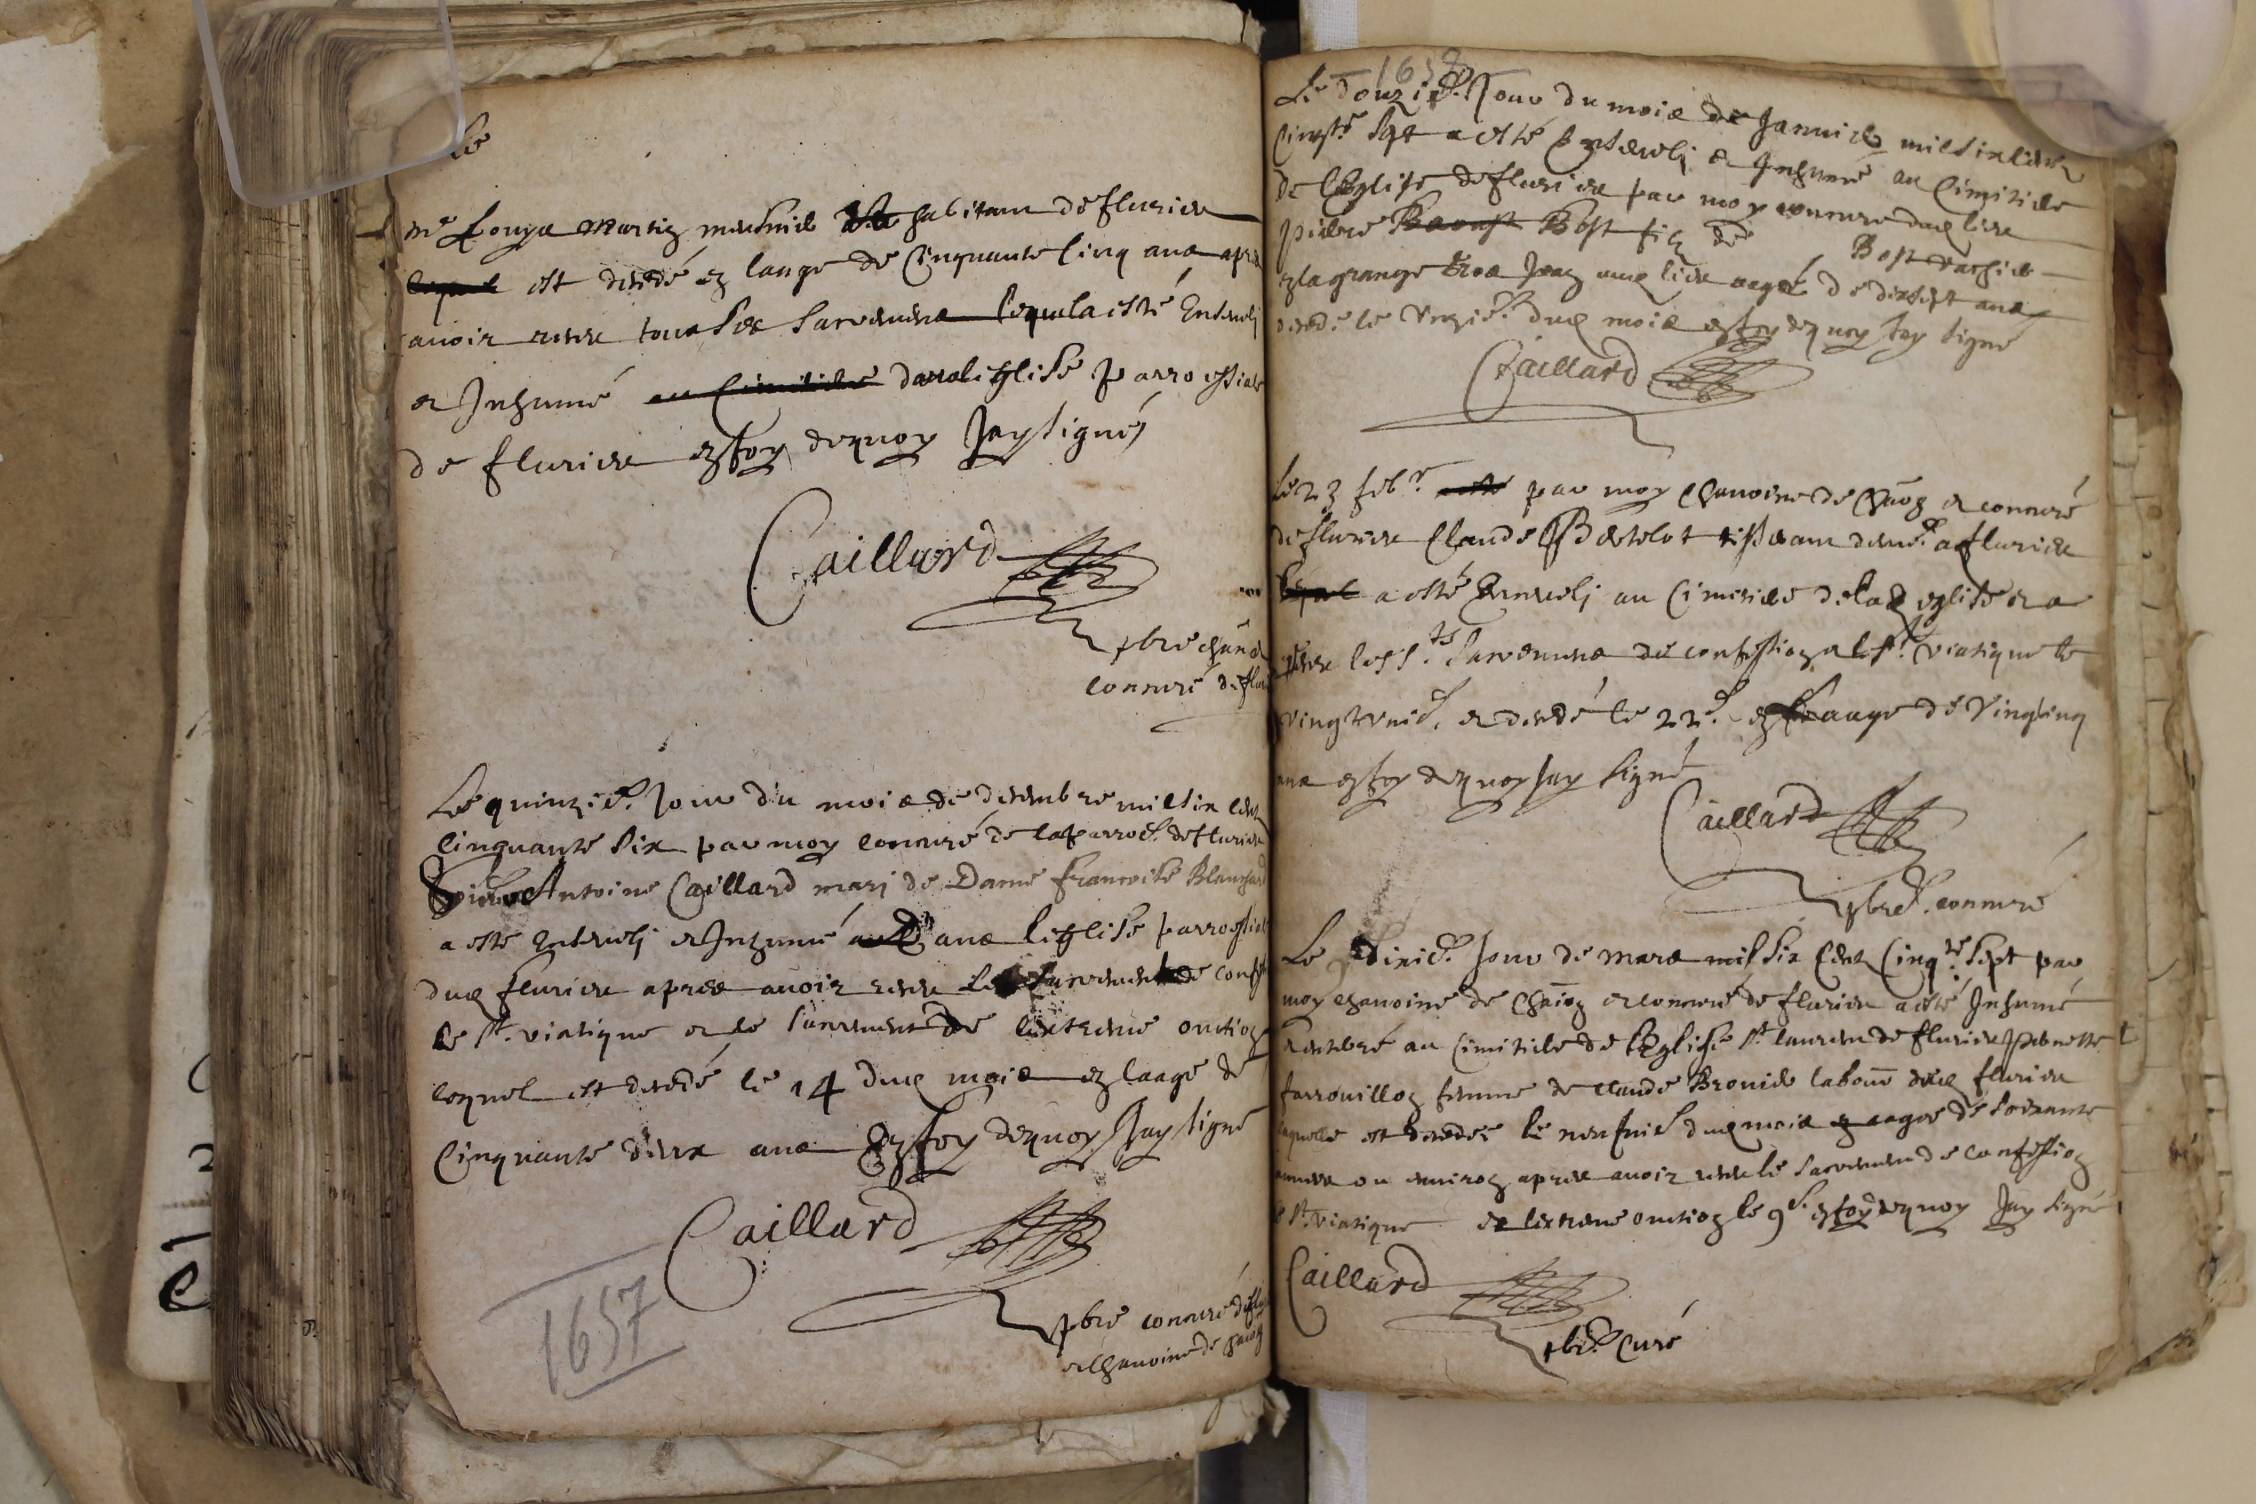 Le
Mr Louys Martin meusnier habitant de flurieu
lequel est decedé en laage de Cinquante Cinq ans apres
avoir receu tous ses sacremens lequel a esté Enseveli
et Inhumé au Cimitiere dans leglise parrossiale
de flurieu en foy dequoy Jay signé
Caillard
pbre chan
concuré de flu
Le quinzie. Jour du mois de decembre mil six cens
Cinquante six par moy concuré de la parroe. de flurieu
Antoine Caillard mari de Dame francoise Blanchard
a esté enseveli et Inhumé dans leglise parrossial
dud flurieu apres avoir receu le sacrement de conf
le st. viatique et le sacrement de lextreme onction
lequel est decedé le 14 dud mois en laage de
Cinquante deux ans En foy dequoy Jay signé
Caillard
1657
pbre concuré de flu
et chanoine de
1657
Le douzie. Jour du mois de Janvier mil six cens
Cinqte. sept a esté Enseveli et Inhumé au Cimitiere
de lEglise de flurieu par moy concuré dud lieu
pierre Bost fils de Bost vachier
en la grange aud lieu aagé de dix sept ans
decedé le Unzie. dud mois en foy dequoy Jay signé
Caillard
Le 23 febr. par moy chanoine de et concuré
de flurieu Claude Bertelot tisseran deme. a flurieu
lequel a esté Enseveli au Cimitiere de lad eglise et a
receu les sts. sacremens de confession et le st. viatique le
vingt unie. et decedé le 22e. en laage de Vingt cinq
ans en foy dequoy Jay signé
Caillard
pbre. concuré
Le dixie. Jour de mars mil six Cens Cinqte. sept par
moy chanoine de et concuré de flurieu a esté Inhumé
au Cimitiere de lEglise st laurent de flurieu pernette
farrouillon femme de claude Brouier dud flurieu
laquelle est decedée le neufvie. dud mois en aage de soixante
annees ou environ apres avoir receu le sacrement de confession
le st. viatique et lextreme onction le 9e. en foy dequoy Jay signé
Caillard
pbre. Curé